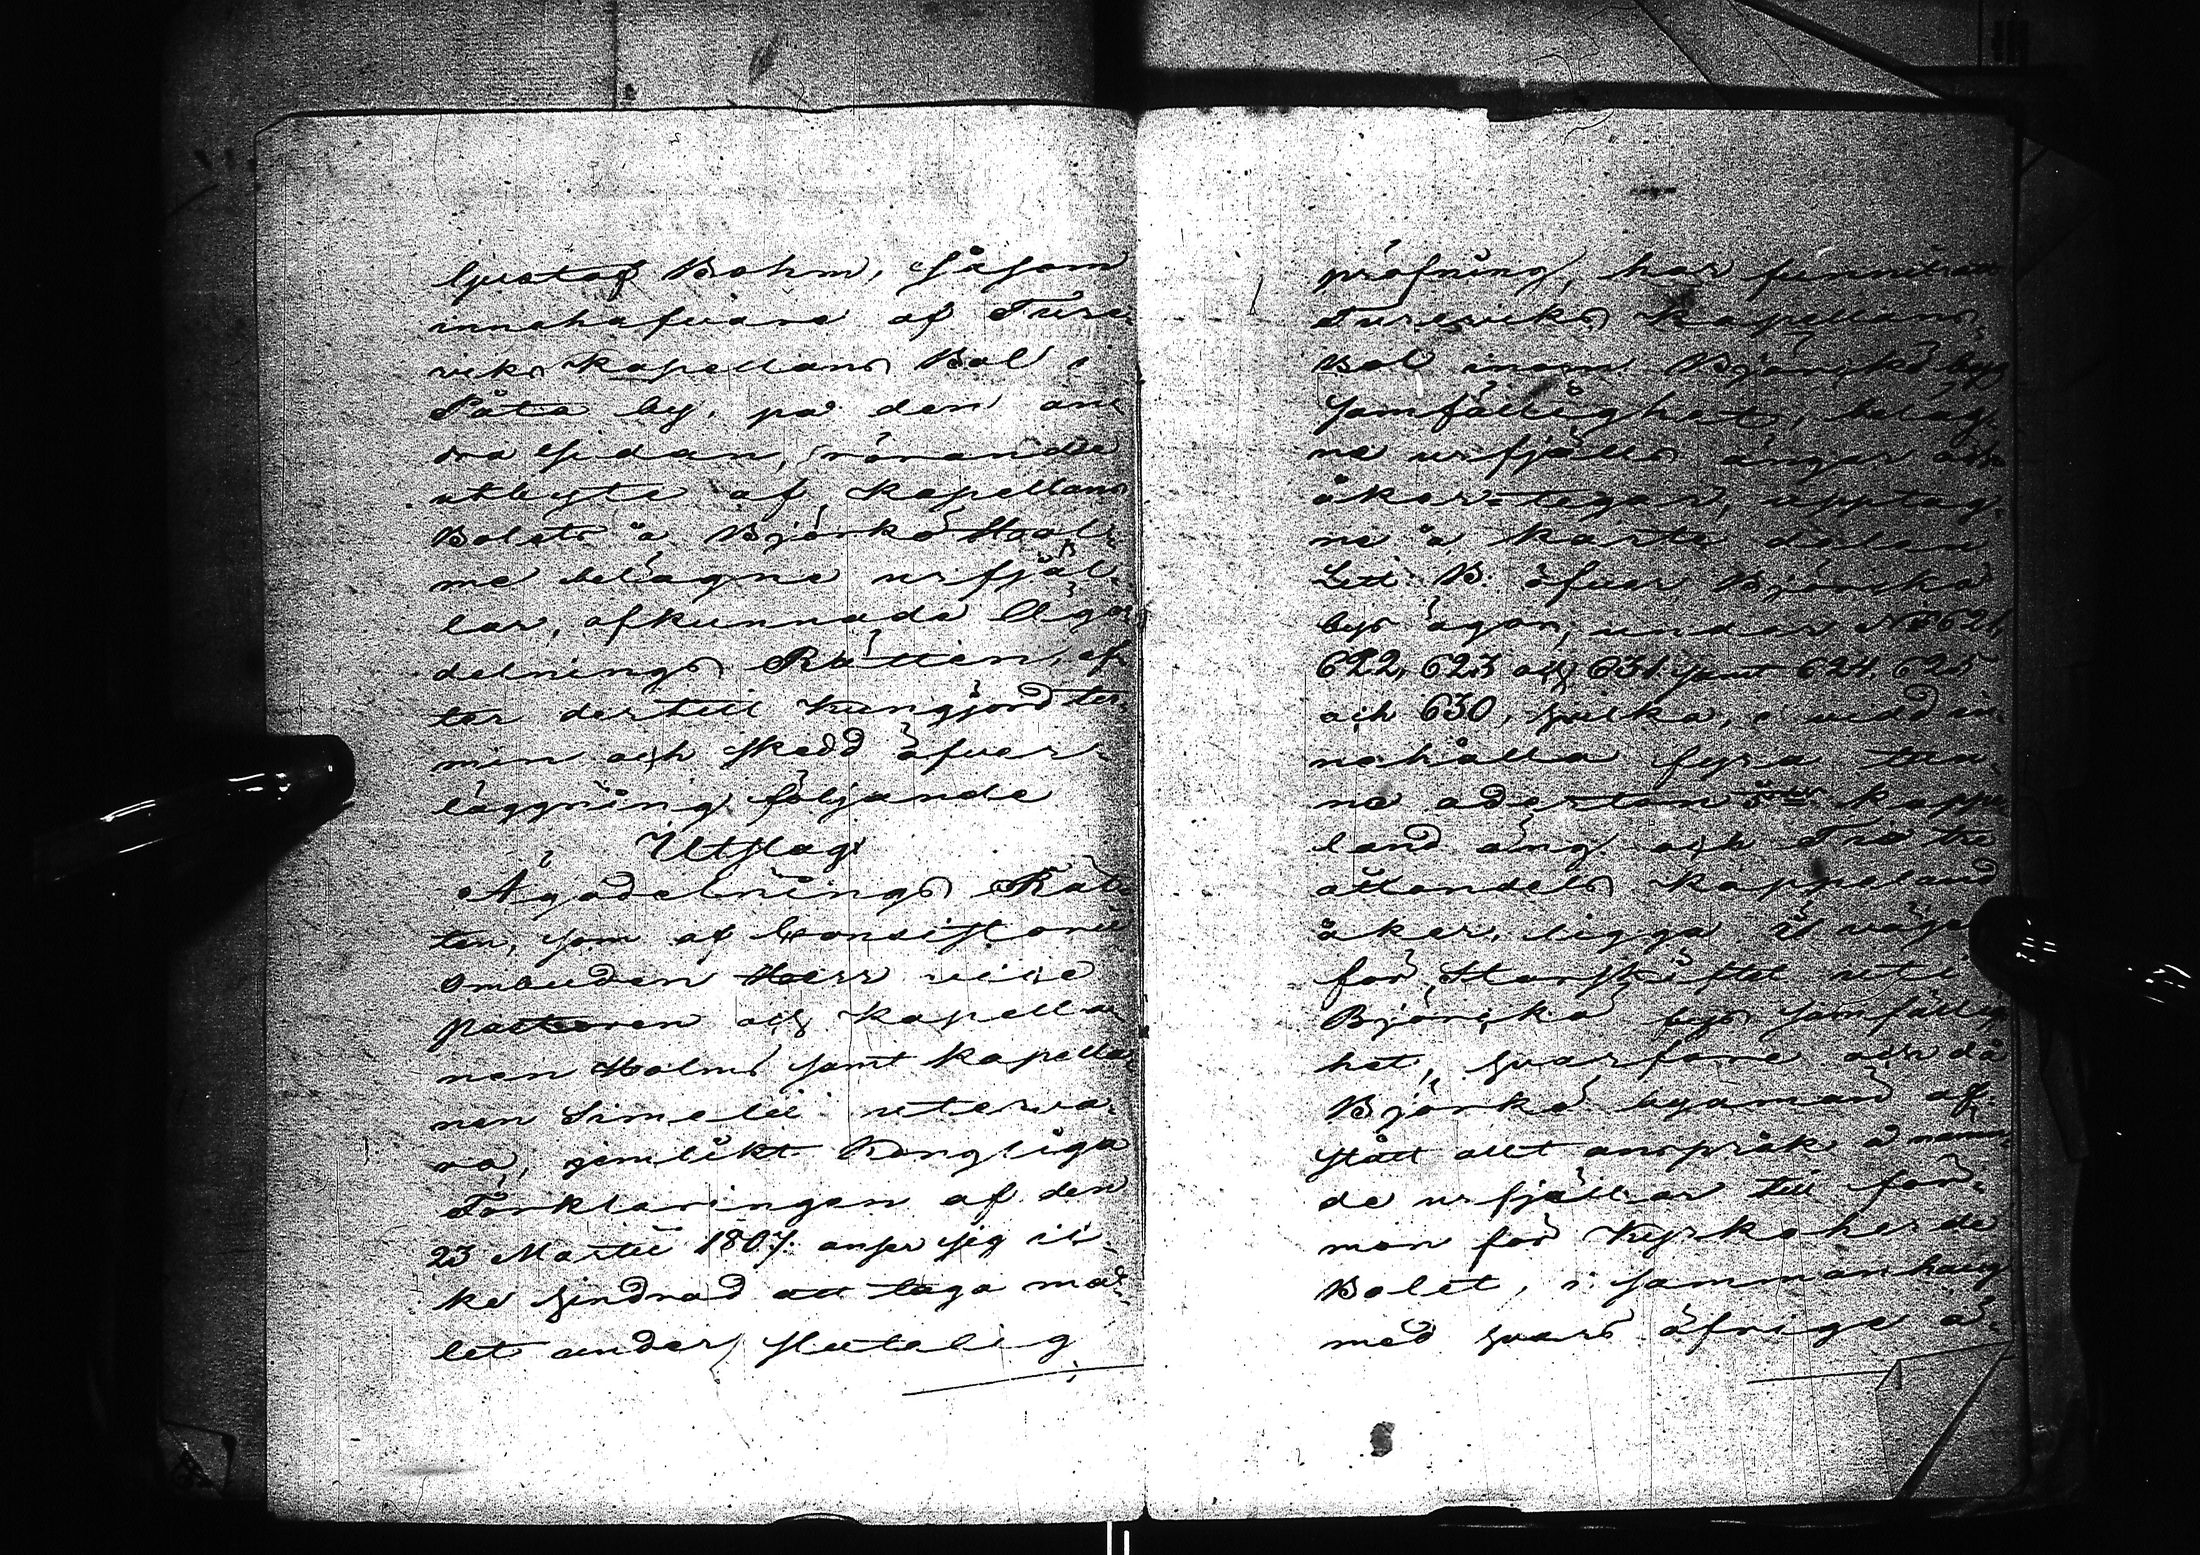 Gustaf Bohm, såsom
innehafware af Ture-
viks Kapellans Bol i
Påta by, på den an-
dra sidan, rörande
utbyte af Kapellans
Bolets å Björkö Hol-
me belägne urfjäl-
lar, afkunnade Ägo-
delnings Rätten, ef-
ter dertill kungjord ter-
min och skedd öfver-
läggning följande
Utslag
Ägodelnings Rät-
ten, som af Consistorii
Ombuden Herr vice
pastoren och Kapella-
nen Holms samt Kapella-
nen Simelii utevva-
ro, jemlikt Kongliga
Förklaringen af den
23 Martii 1807 anser sig ic-
ke hindrad att taga må-
let under slutelig
pröfning, har funnit att
Tureviks Kapellans-
Bol inom Björckö bys
Samfällighet, beläg-
ne urfjälls ängar och
åker-tegar, upptag-
ne å Karte delen
Litt. B. öfver Björckö
bys ägor, under No 621,
622, 623 och 631 samt 624, 625
och 630, hvilka, i vidd in-
nehålla fyra tun-
ne aderton kappe
land äng och Tio tre
åttondels Kappeland
åker, ligga i väge
för Storskiftet uti
Björckö bys Samfällig-
het, hvarföre och då
Björkö byamän af-
stått allt anspråk å nämn-
de urfjällar till för-
mon för Kyrkoherde
Bolet, i sammanhang
med hvars öfrige ä-